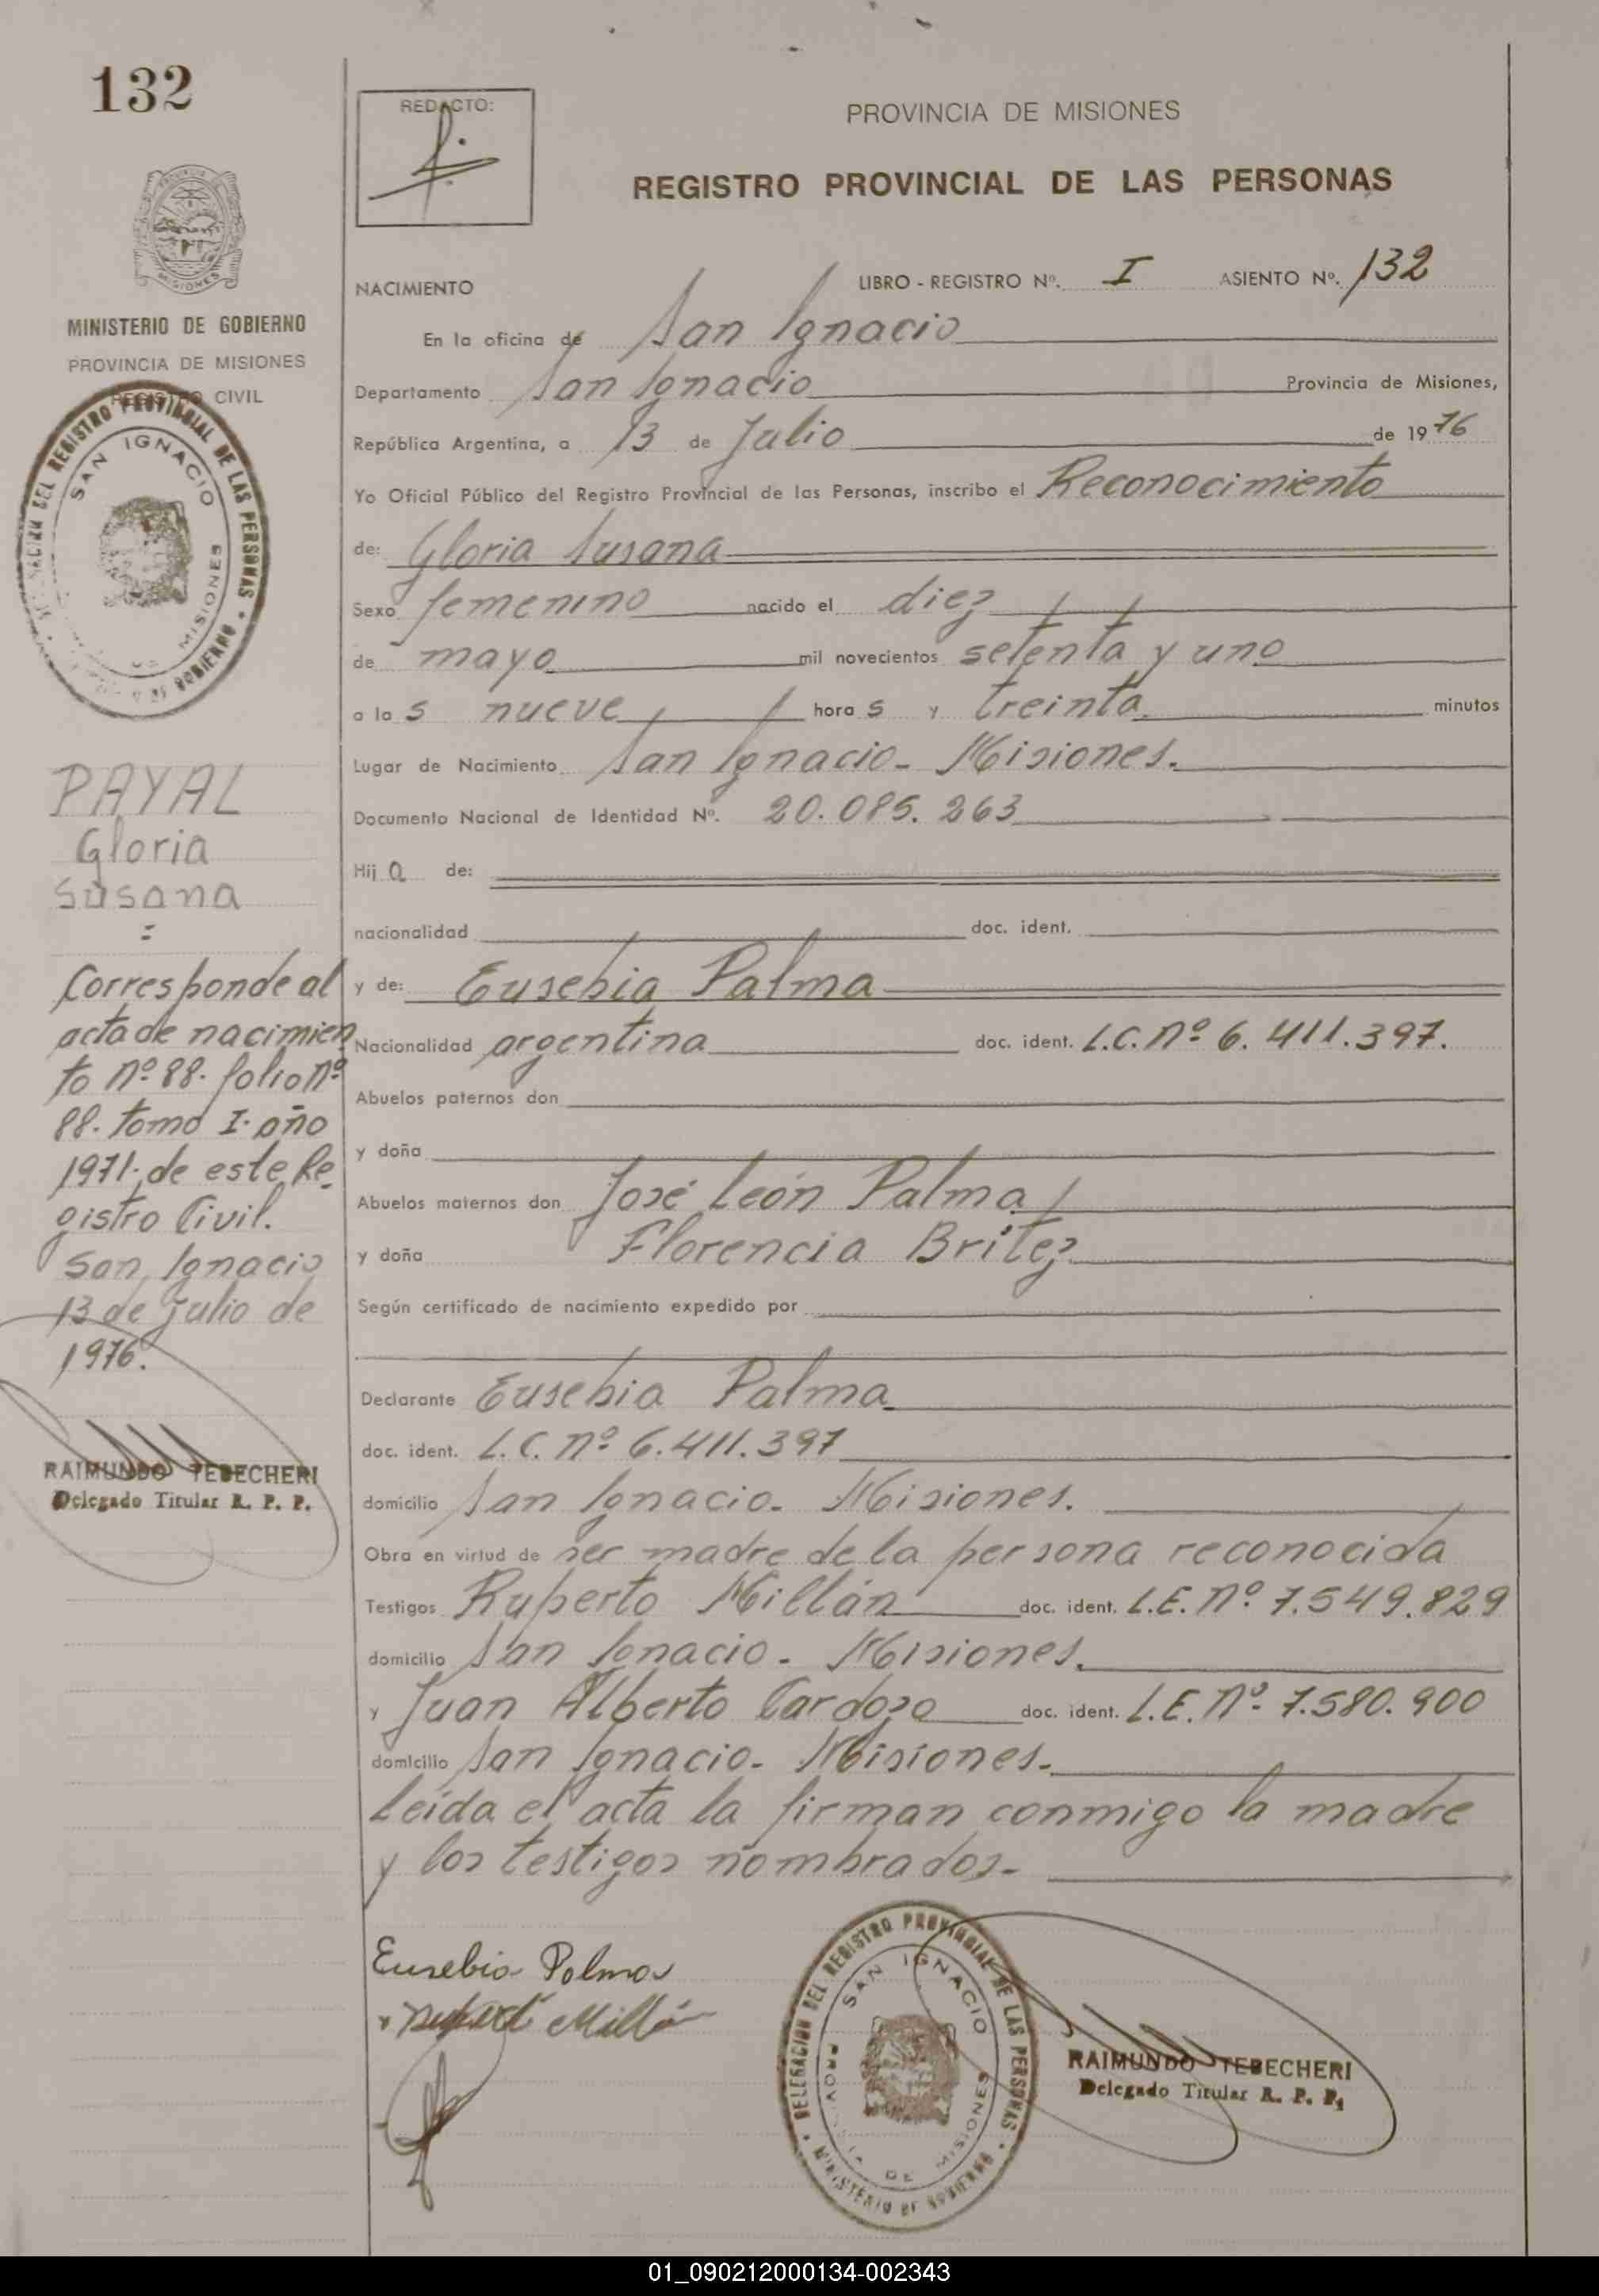 132
REDACTO:
PROVINCIA DE MISIONES
REGISTRO PROVINCIAL DE LAS PERSONAS
MINISTERIO DE GOBIERNO
PROVINCIA DE MISIONES
REGISTRO CIVIL
REGISTRO PROVINCIAL DE LAS PERSONAS
SAN IGNACIO
MISIONES
PAYAL
Gloria
Susana
=
Corresponde al
acta de nacimien
to nº 88. folio nº
88. tomo I. año
1971, de este Re-
gistro Civil.
San Ignacio
13 de julio de
1976.
RAIMUNDO TEBECHERI
Delegado Titular R. P. P.
NACIMIENTO LIBRO - REGISTRO Nº. I ASIENTO Nº. 132
En la oficina de San Ignacio
Departamento San Ignacio Provincia de Misiones,
República Argentina, a 13 de Julio de 1976
Yo Oficial Público del Registro Provincial de las Personas, inscribo el Reconocimiento
de: Gloria Susana
Sexo femenino nacido el diez
de mayo mil novecientos setenta y uno
a la s nueve hora s y treinta minutos
Lugar de Nacimiento San Ignacio - Misiones.
Documento Nacional de Identidad Nº. 20.085.263
Hij a de:
nacionalidad doc. ident.
y de: Eusebia Palma
Nacionalidad argentina doc. ident. L.C. nº 6.411.397.
Abuelos paternos don
y doña
Abuelos maternos don José León Palma
y doña Florencia Britez
Según certificado de nacimiento expedido por
Declarante Eusebia Palma
doc. ident. L.C. nº 6.411.397
domicilio San Ignacio - Misiones.
Obra en virtud de ser madre de la persona reconocida
Testigos Ruperto Millán doc. ident. L.E. nº 7.549.829
domicilio San Ignacio - Misiones.
y Juan Alberto Cardozo doc. ident. L.E. nº 7.580.900
domicilio San Ignacio - Misiones.
Leída el acta la firman conmigo la madre
y los testigos nombrados.-
Eusebia Palma
Millán
DELEGACION DEL REGISTRO PROVINCIAL DE LAS PERSONAS
SAN IGNACIO
DE MISIONES
MINISTERIO DE GOBIERNO
RAIMUNDO TEBECHERI
Delegado Titular R. P. P.
01_090212000134-002343